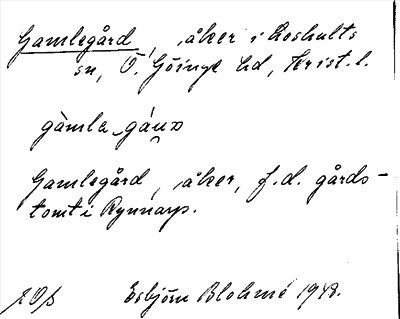 Gamlegård, åker i Loshults
sn, Ö. Göinge hd, Krist. l.
gàmla gáux
Gamlegård, åker, f.d. gårds-
tomt i Rynnarp.
Esbjörn Blohmé 1948.